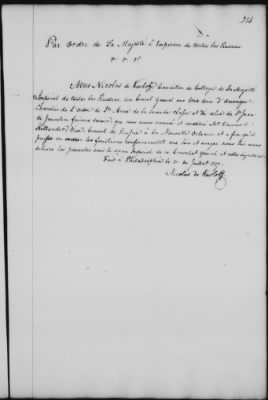 Par ordre de Sa Majesté l'Empereur de toutes les Russies
&. &. &.
Nous Nicolas de Kosloff Conseiller de Collège de Sa Majesté
Impérial de toutes les Russies, son Consul Général aux Etats Unis d'Amérique
Chevalier de l'ordre de Ste Anne de la seconde Classe et de celui de St Jean
de Jerusalem faisons savoir que nous avons nommé et Mr.
Hollander Vice Consul de Russie à la Nouvelle Orléans et afin qu'il
puisse en exercer les fonctions conformément aux loix et usages nous lui avons
donné les presentes sous le sceau Imperial de ce Consulat général et notre signature.
Fait à Philadelphia le Juillet
Nicolas de Kosloff